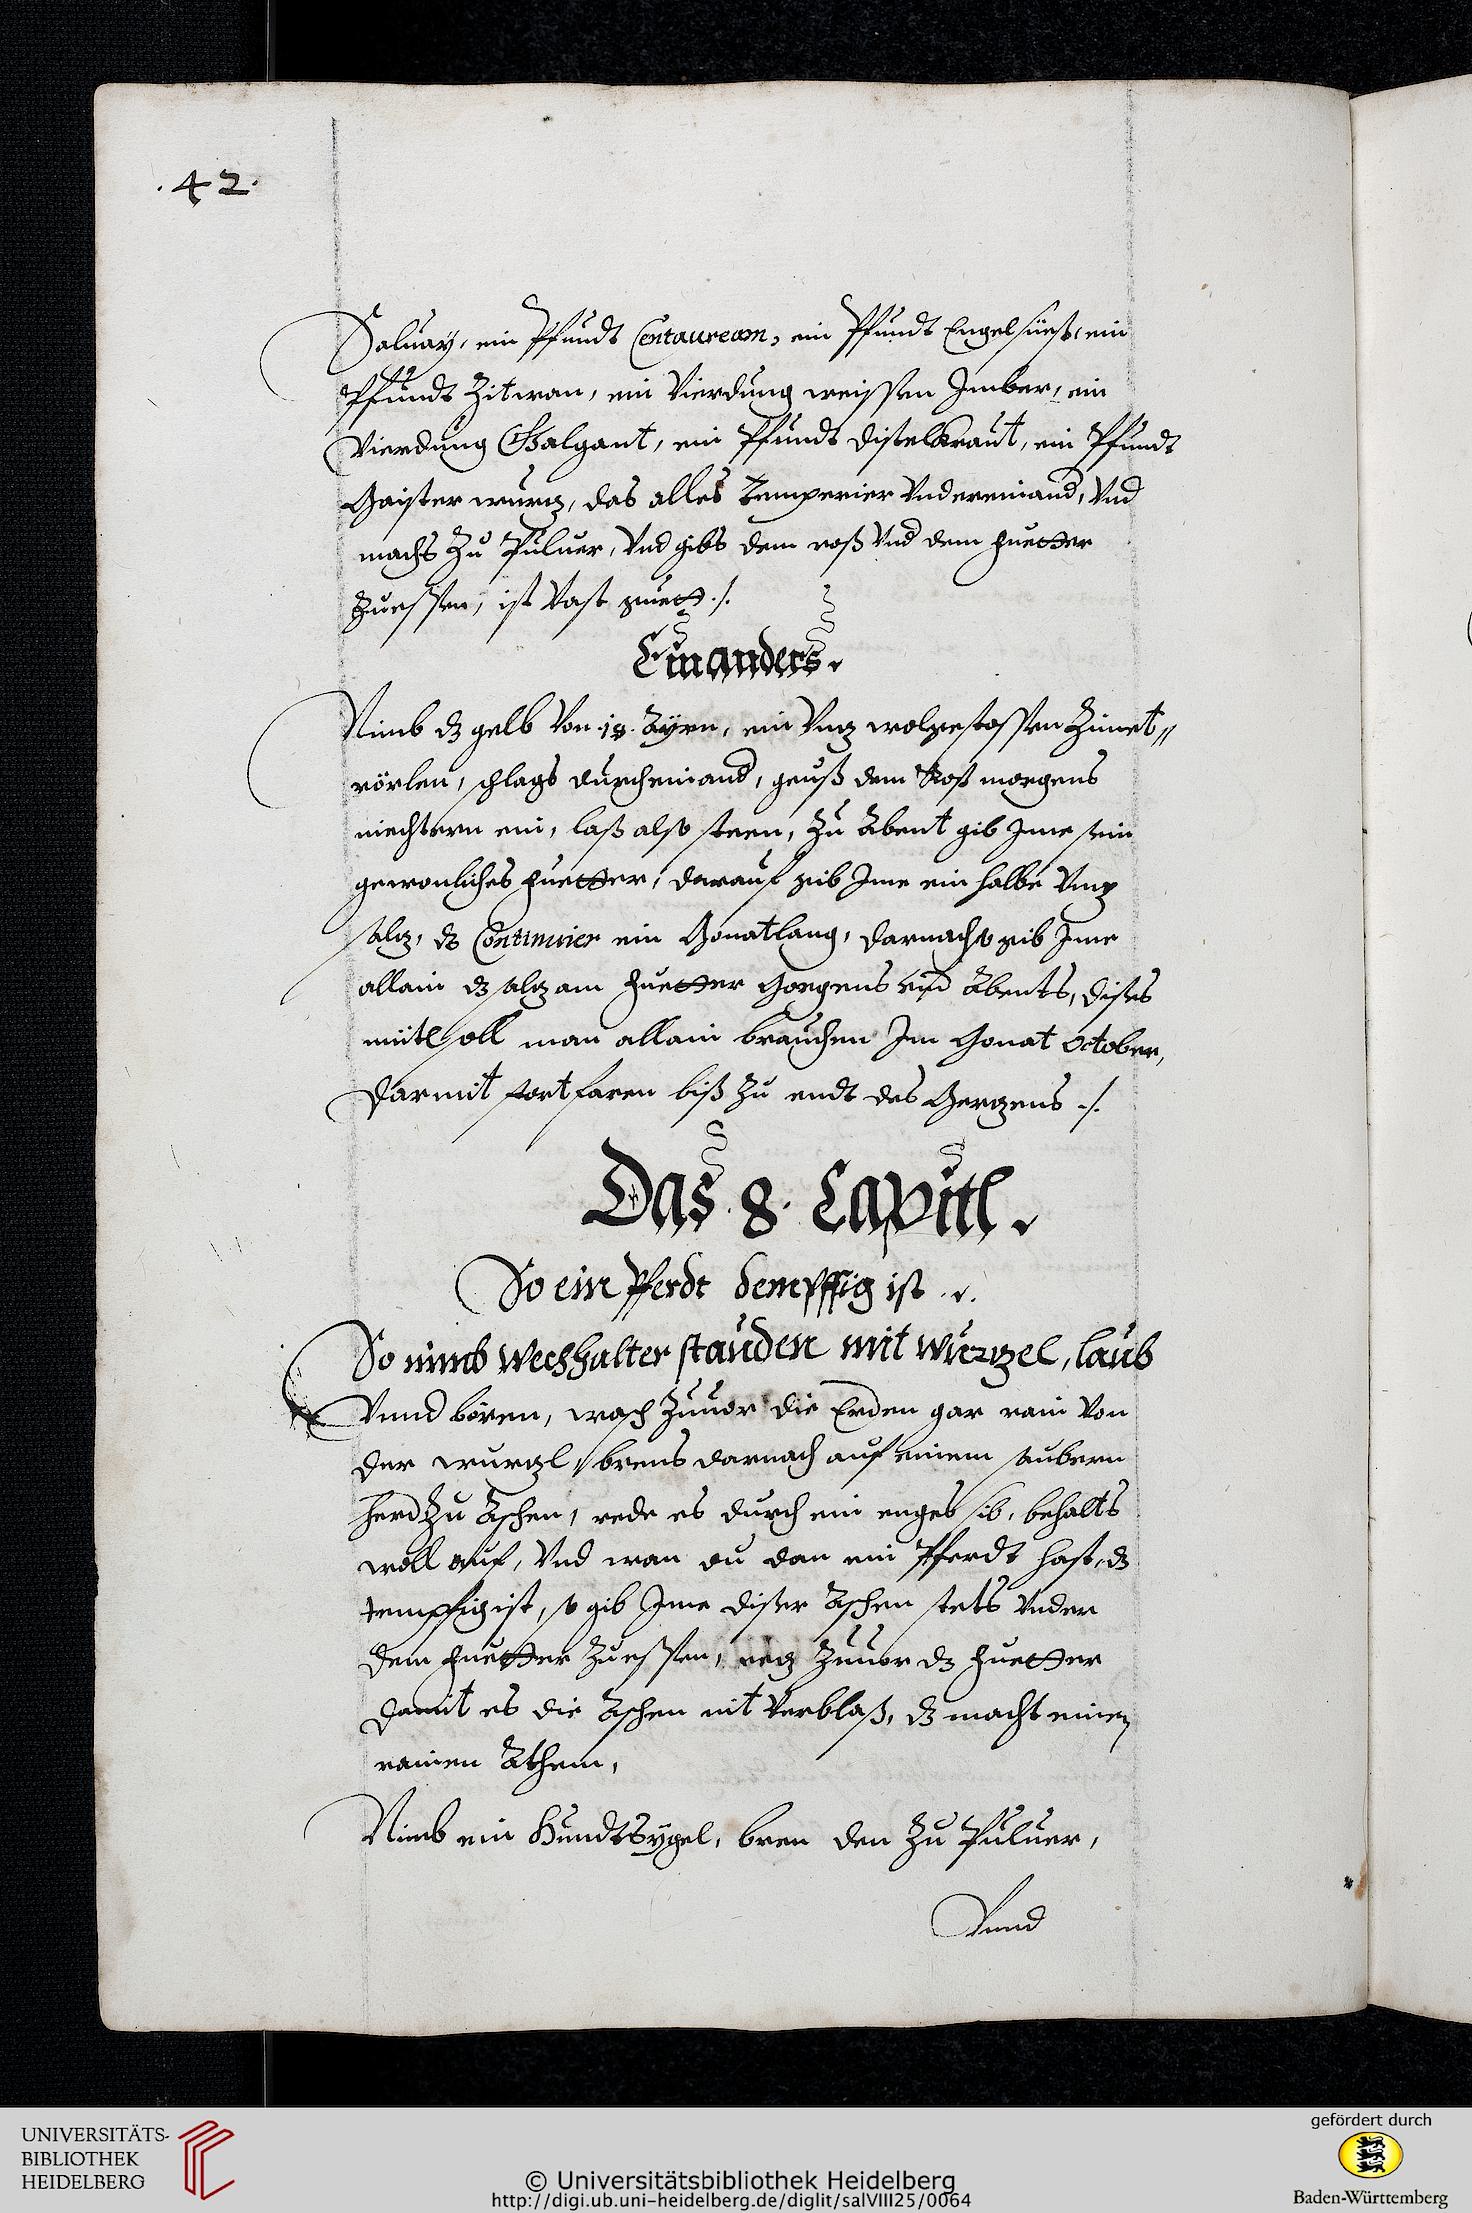 .42.
Saluay, ein Pfundt Centauream, ein Pfundt Engelsüeß, ein
Pfundt Zitwan, ein Vierdung weissen Imber, ein
Vierdung Galgant, ein Pfundt distelkraut, ein Pfundt
Maister wurz, das alles Temperier Vndereinand, Vnd
machs Zu Puluer, Vnd gibs dem roß Vnd dem Fuetter
Zuessen, ist Vast guett ./.
Ein anders.
Nimb dz gelb Von .18. Ayrn, ein Vnz wolgestossen Zimet„
rörlen, schlags durcheinand, geuß dem Roß morgens
niechtern ein, laß also steen, Zu Abent gib Ime sein
gewonliches Fuetter, darauf gib Ime ein halbe Vnz
salz, dz Continuier ein Monatlang, darnach gib Ime
allain dz salz am Fuetter Morgens Vnd Abents, dises
mitl soll man allain brauchen Im Monat October,
darmit fortfaren biß Zu endt des Merzens ./.
Das .8. Capitl.
So ein Pferdt dempffig ist .
So nimb Wechhalter stauden mit wurzel, laub
Vnnd bören, wasch Zuuor die Erden gar rain Von
der wurzl, brens darnach auf einem saubern
herd Zu Aschen, rede es durch ein enges sib, behalts
woll auf, Vnd wan du dan ein Pferdt hast, dz
tempffig ist, so gib Ime diser Aschen stets Vnder
dem Fuetter Zuessen, nez Zuuor dz Fuetter
damit es die Aschen nit Verblaß, dz macht einen
rainen Athem,
Nimb ein Hundtsygel, bren den Zu Puluer,
Vnnd
UNIVERSITÄTS-
BIBLIOTHEK
HEIDELBERG
© Universitätsbibliothek Heidelberg
http://digi.ub.uni-heidelberg.de/diglit/salVIII25/0064
gefördert durch
Baden-Württemberg